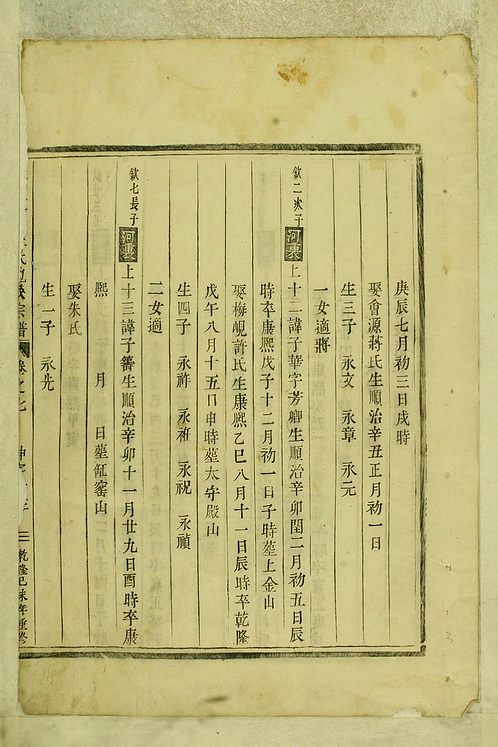 庚辰七月初三日戌時
娶會源蔣氏生順治辛丑正月初一日
生三子 永文 永章 永元
一女適蔣
欽二次子 河裏 上十二諱子華字芳卿生順治辛卯閏二月初五日辰
時卒康熙戊子十二月初一日子時塟上金山
娶梅峴許氏生康熙乙巳八月十一日辰時卒乾隆
戊午八月十五日申時塟太守殿山
生四子 永祚 永祈 永祝 永禎
二女適
欽七長子 河裏 上十三諱子籌生順治辛卯十一月廿九日酉時卒康
熙 月 日塟缸窑山
娶朱氏
生一子 永先
氏 宗譜 卷之七 乾隆己未年重修